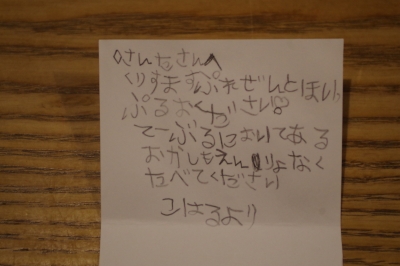 さんたさんへ
くりすますぷれぜんとほいっ
ぷるおくださいね
てーぶるにおいてある
おかしもえんりょなく
たべてください
こはるより